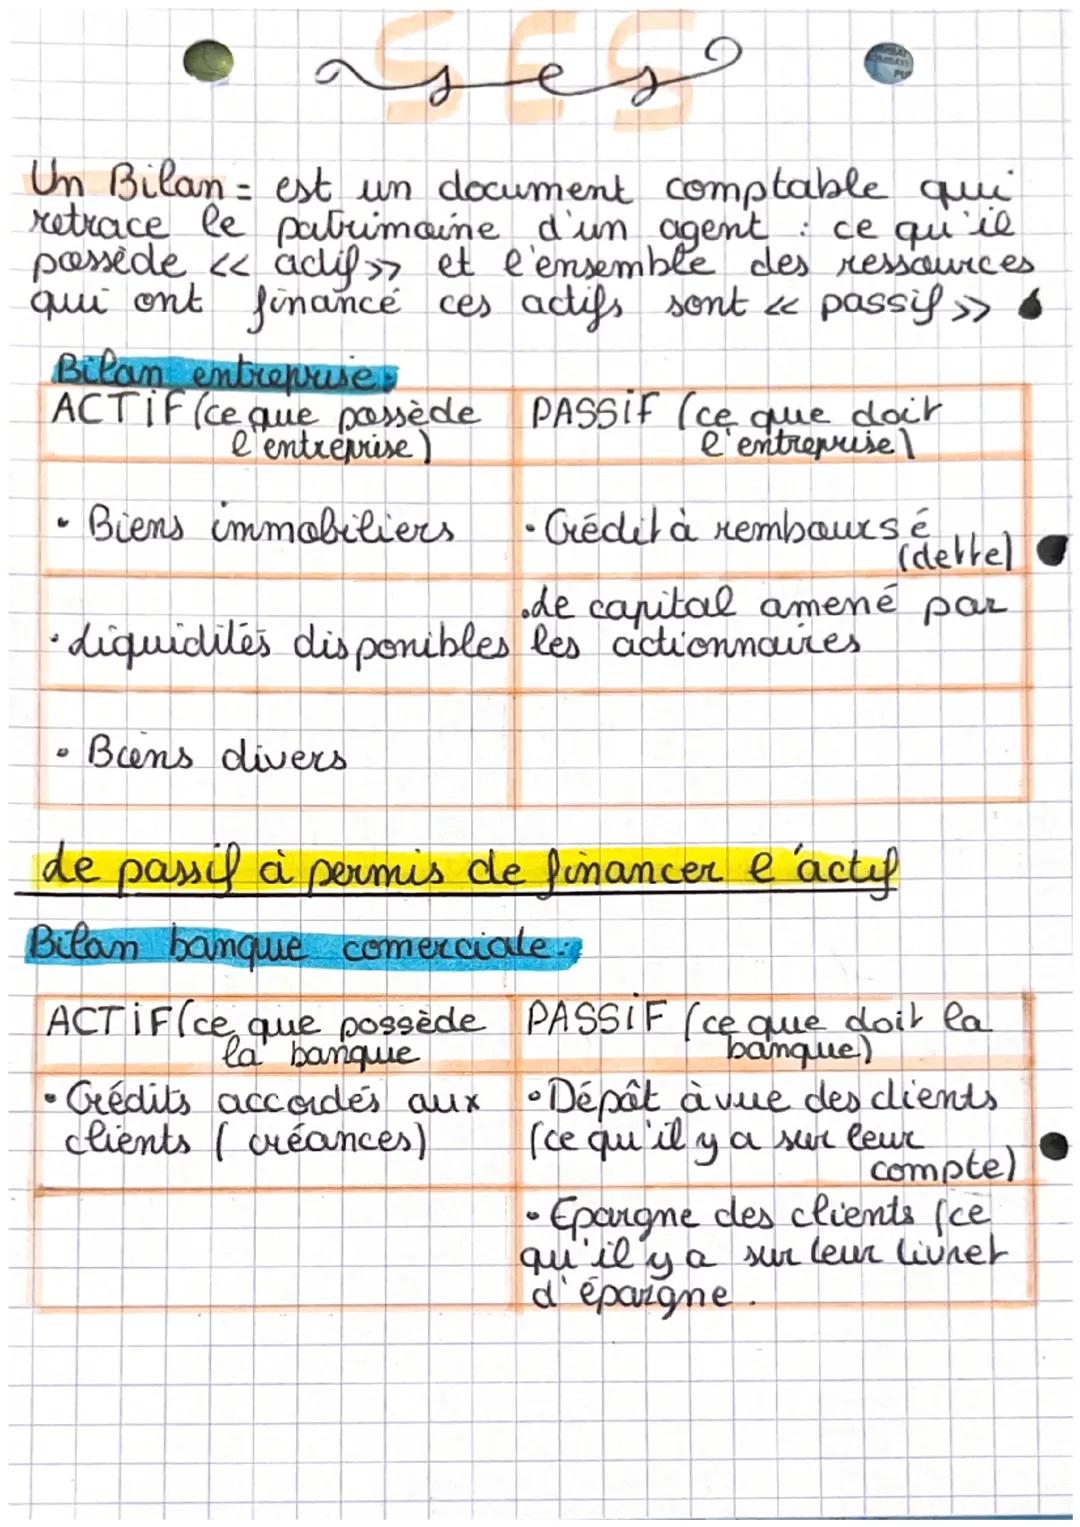 SES
ses
Un Bilan = est un document comptable qui
retrace le patrimoine d'un agent : ce qu'il
possède << actif >> et l'ensemble des ressources
qui ont financé ces actifs sont << passif >>
Bilan entreprise:
ACTIF (ce que possède
l'entreprise)
PASSIF (ce que doit
l'entreprise)
• Biens immobiliers
• Crédit à remboursé
(dette)
• Liquidités disponibles
• Le capital amené par
les actionnaires
• Biens divers
Le passif à permis de financer l'actif
Bilan banque comerciale:
ACTIF (ce que possède
la banque
PASSIF (ce que doit la
banque)
• Crédits accordés aux
clients (créances)
• Dépôt à vue des clients
(ce qu'il y a sur leur
compte)
• Epargne des clients (ce
qu'il y a sur leur livret
d'épargne.